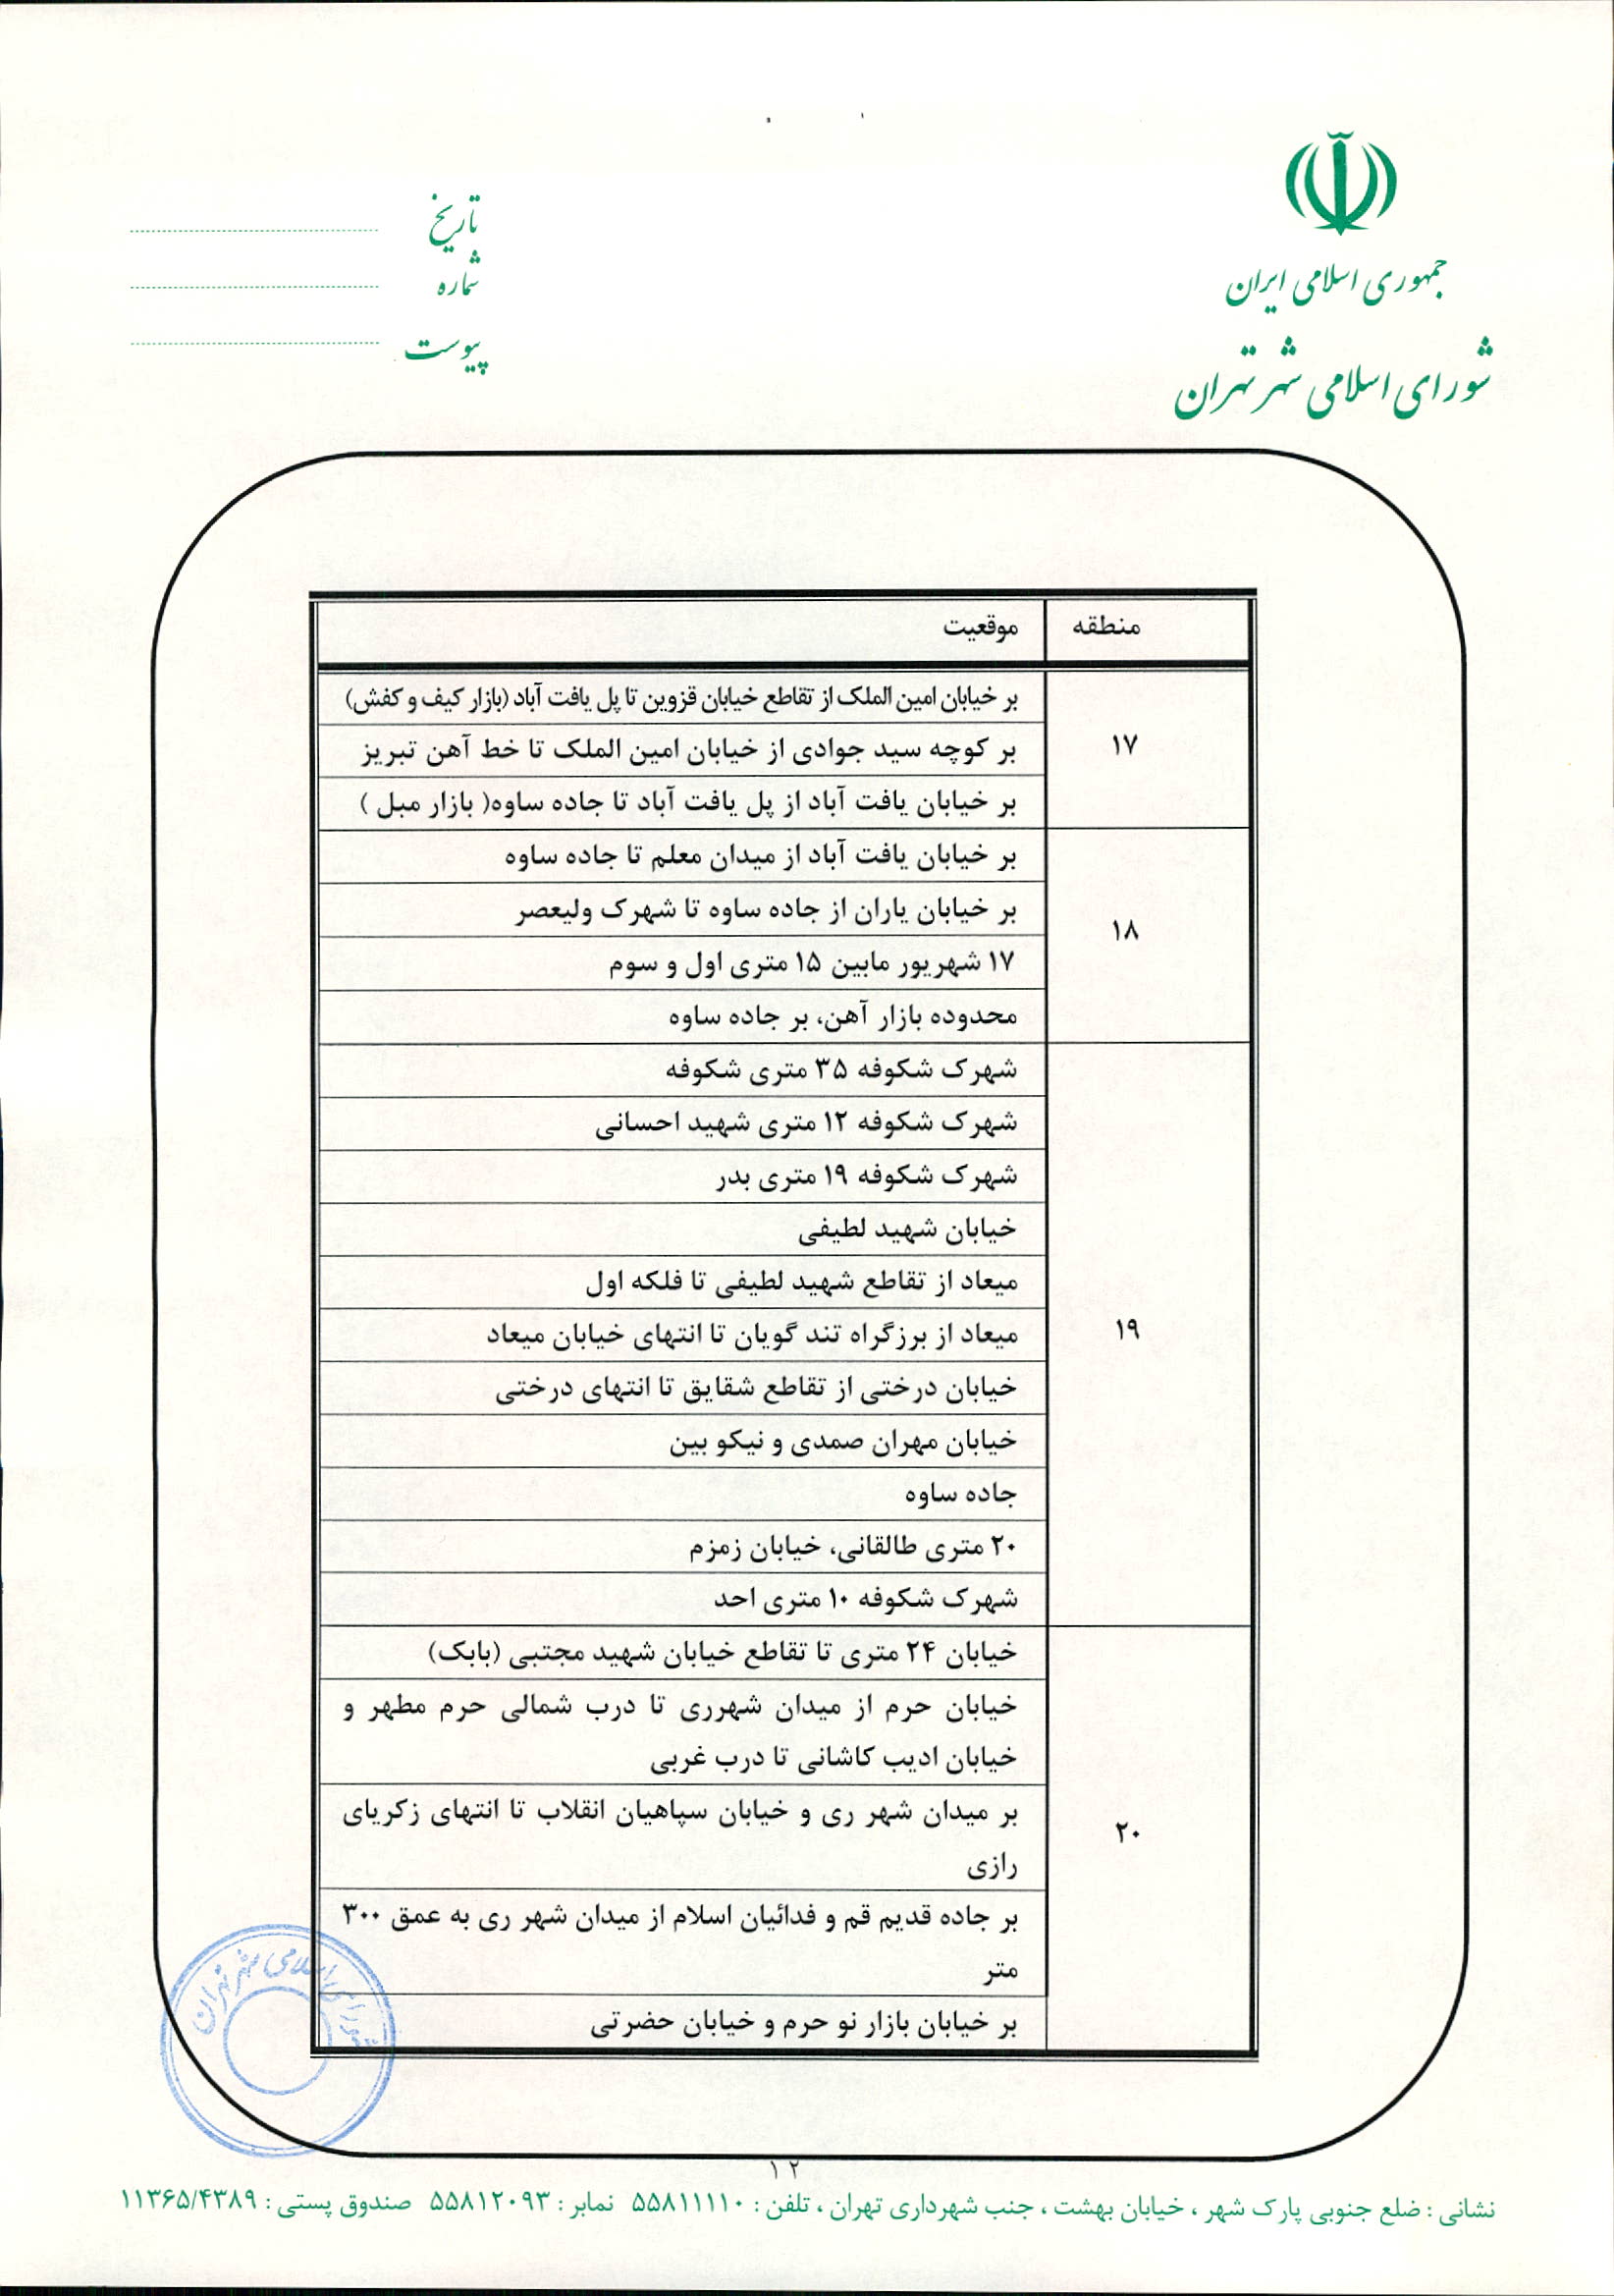 جمهوری اسلامی ایران
شورای اسلامی شهر تهران
تاریخ
شماره
پیوست
منطقه موقعیت
۱۷
بر خیابان امین الملک از تقاطع خیابان قزوین تا پل یافت آباد (بازار کیف و کفش)
بر کوچه سید جوادی از خیابان امین الملک تا خط آهن تبریز
بر خیابان یافت آباد از پل یافت آباد تا جاده ساوه( بازار مبل )
۱۸
بر خیابان یافت آباد از میدان معلم تا جاده ساوه
بر خیابان یاران از جاده ساوه تا شهرک ولیعصر
۱۷ شهریور مابین ۱۵ متری اول و سوم
محدوده بازار آهن، بر جاده ساوه
۱۹
شهرک شکوفه ۳۵ متری شکوفه
شهرک شکوفه ۱۲ متری شهید احسانی
شهرک شکوفه ۱۹ متری بدر
خیابان شهید لطیفی
میعاد از تقاطع شهید لطیفی تا فلکه اول
میعاد از برزگراه تند گویان تا انتهای خیابان میعاد
خیابان درختی از تقاطع شقایق تا انتهای درختی
خیابان مهران صمدی و نیکو بین
جاده ساوه
۲۰ متری طالقانی، خیابان زمزم
شهرک شکوفه ۱۰ متری احد
۲۰
خیابان ۲۴ متری تا تقاطع خیابان شهید مجتبی (بابک)
خیابان حرم از میدان شهرری تا درب شمالی حرم مطهر و
خیابان ادیب کاشانی تا درب غربی
بر میدان شهر ری و خیابان سپاهیان انقلاب تا انتهای زکریای
رازی
بر جاده قدیم قم و فدائیان اسلام از میدان شهر ری به عمق ۳۰۰
متر
بر خیابان بازار نو حرم و خیابان حضرتی
شورای اسلامی شهر تهران
۱۲
نشانی : ضلع جنوبی پارک شهر ، خیابان بهشت ، جنب شهرداری تهران ، تلفن : ۵۵۸۱۱۱۱۰ نمابر : ۵۵۸۱۲۰۹۳ صندوق پستی : ۱۱۳۶۵/۴۳۸۹